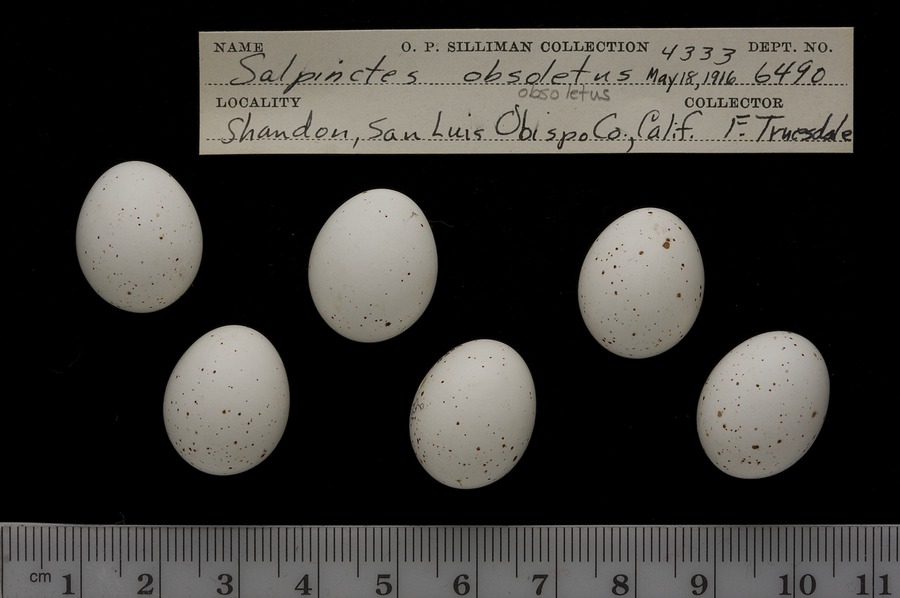 NAME O. P. SILLIMAN COLLECTION 4333 DEPT. NO.
Salpinctes obsoletus May 18, 1916 6490
obsoletus
LOCALITY COLLECTOR
Shandon, San Luis Obispo Co., Calif. F. Truesdale
cm 1 2 3 4 5 6 7 8 9 10 11